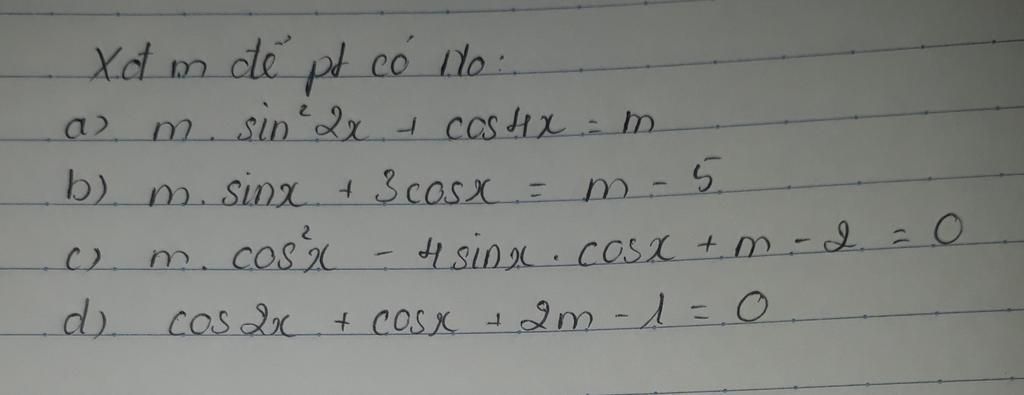 Xđ m để pt có No:
a) m. sin²2x + cos4x = m
b) m. sinx + 3cosx = m - 5
c) m. cos²x - 4sinx. cosx + m - 2 = 0
d) cos2x + cosx + 2m - 1 = 0